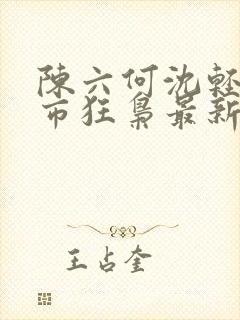 陳六何沈輕
市狂梟最新
王占奎